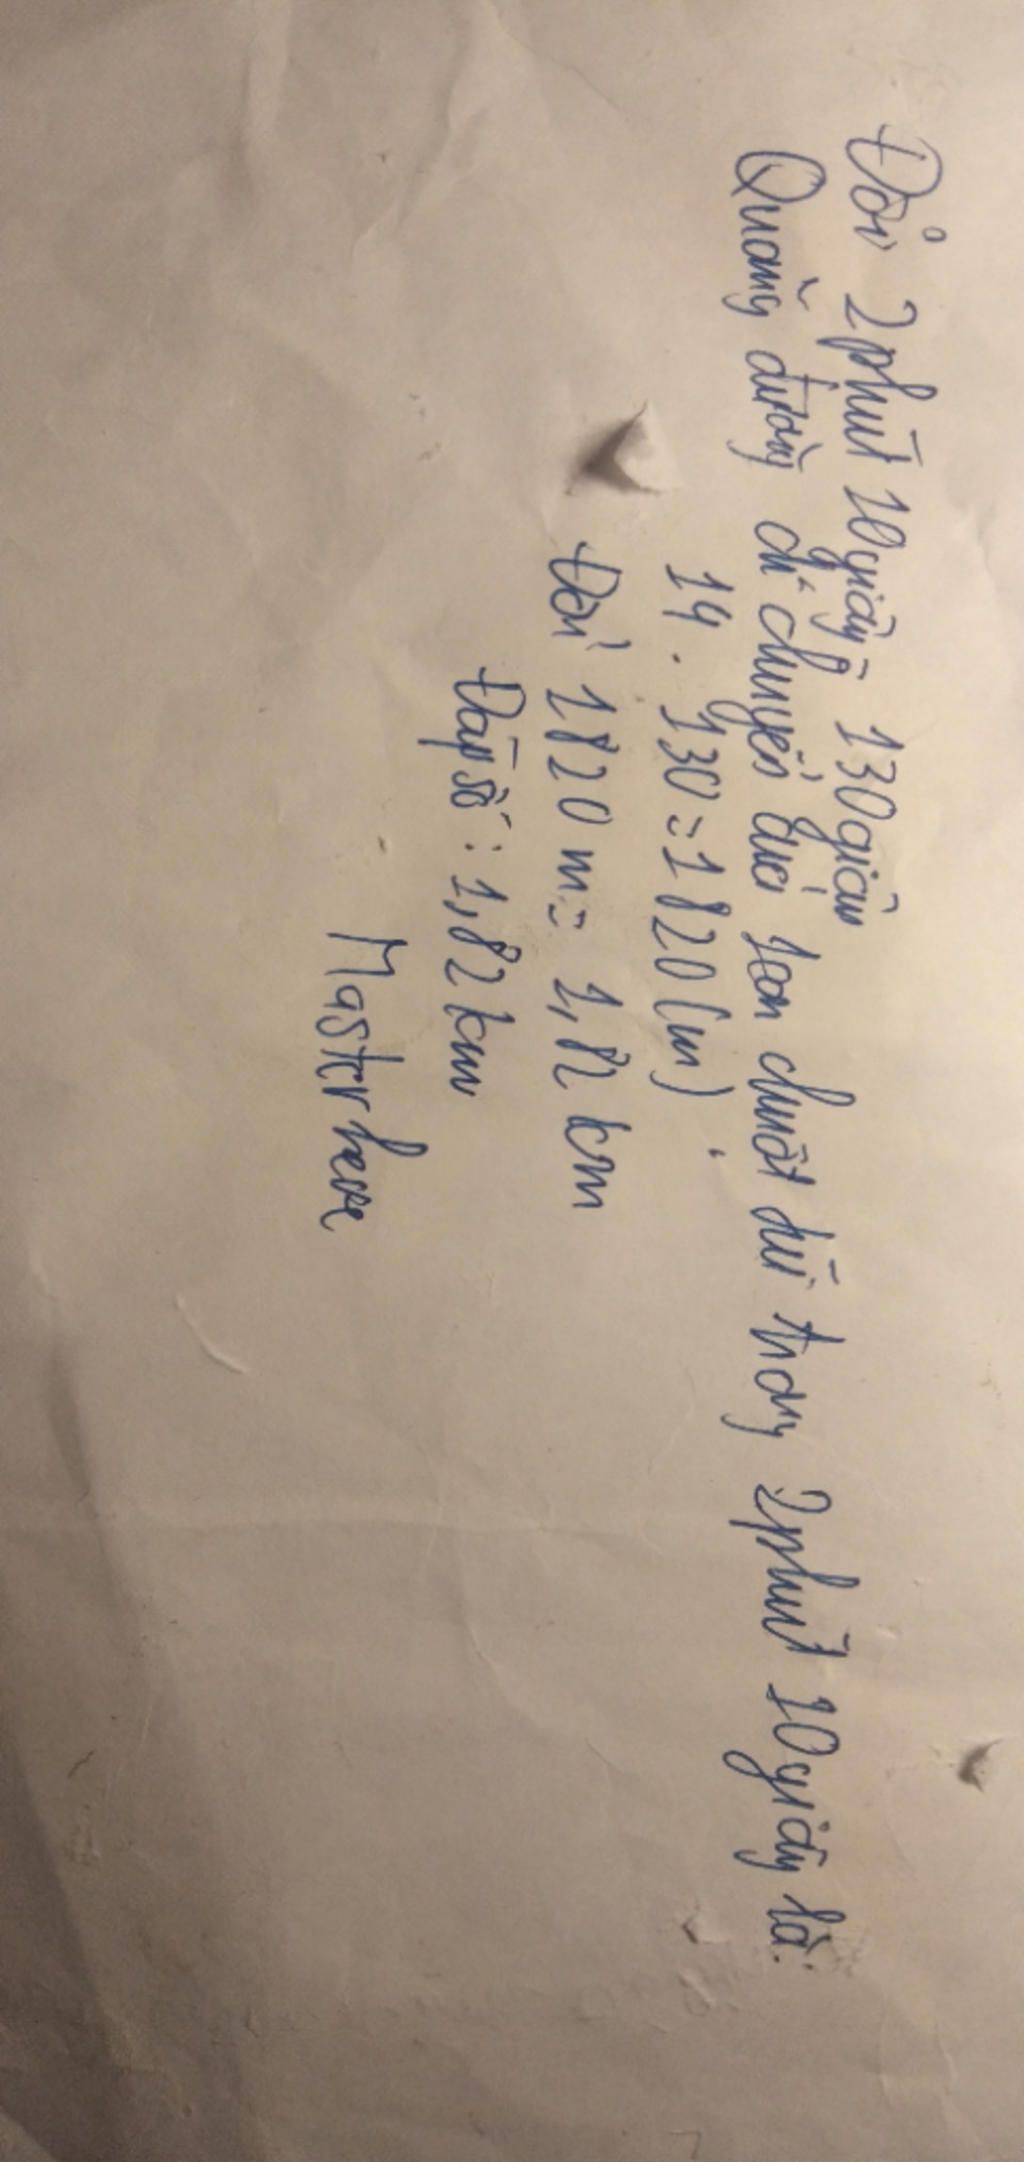 Đổi 2 phút 10 giây = 130 giây
Quãng đường di chuyển của 1 con chuột túi trong 2 phút 10 giây là:
14 . 130 = 1820 (m)
Đổi 1820 m = 1,82 km
Đáp số : 1,82 km